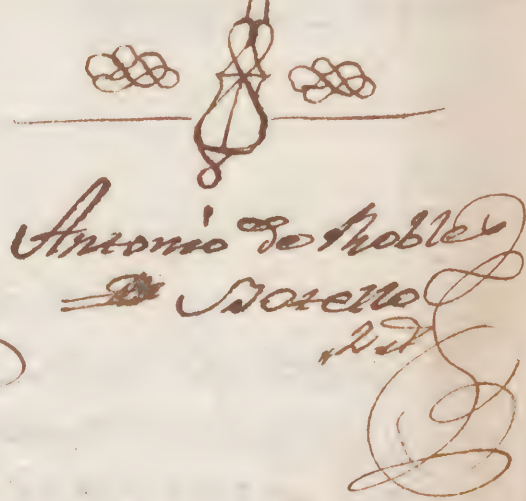 Antonio de Robles
Moreno